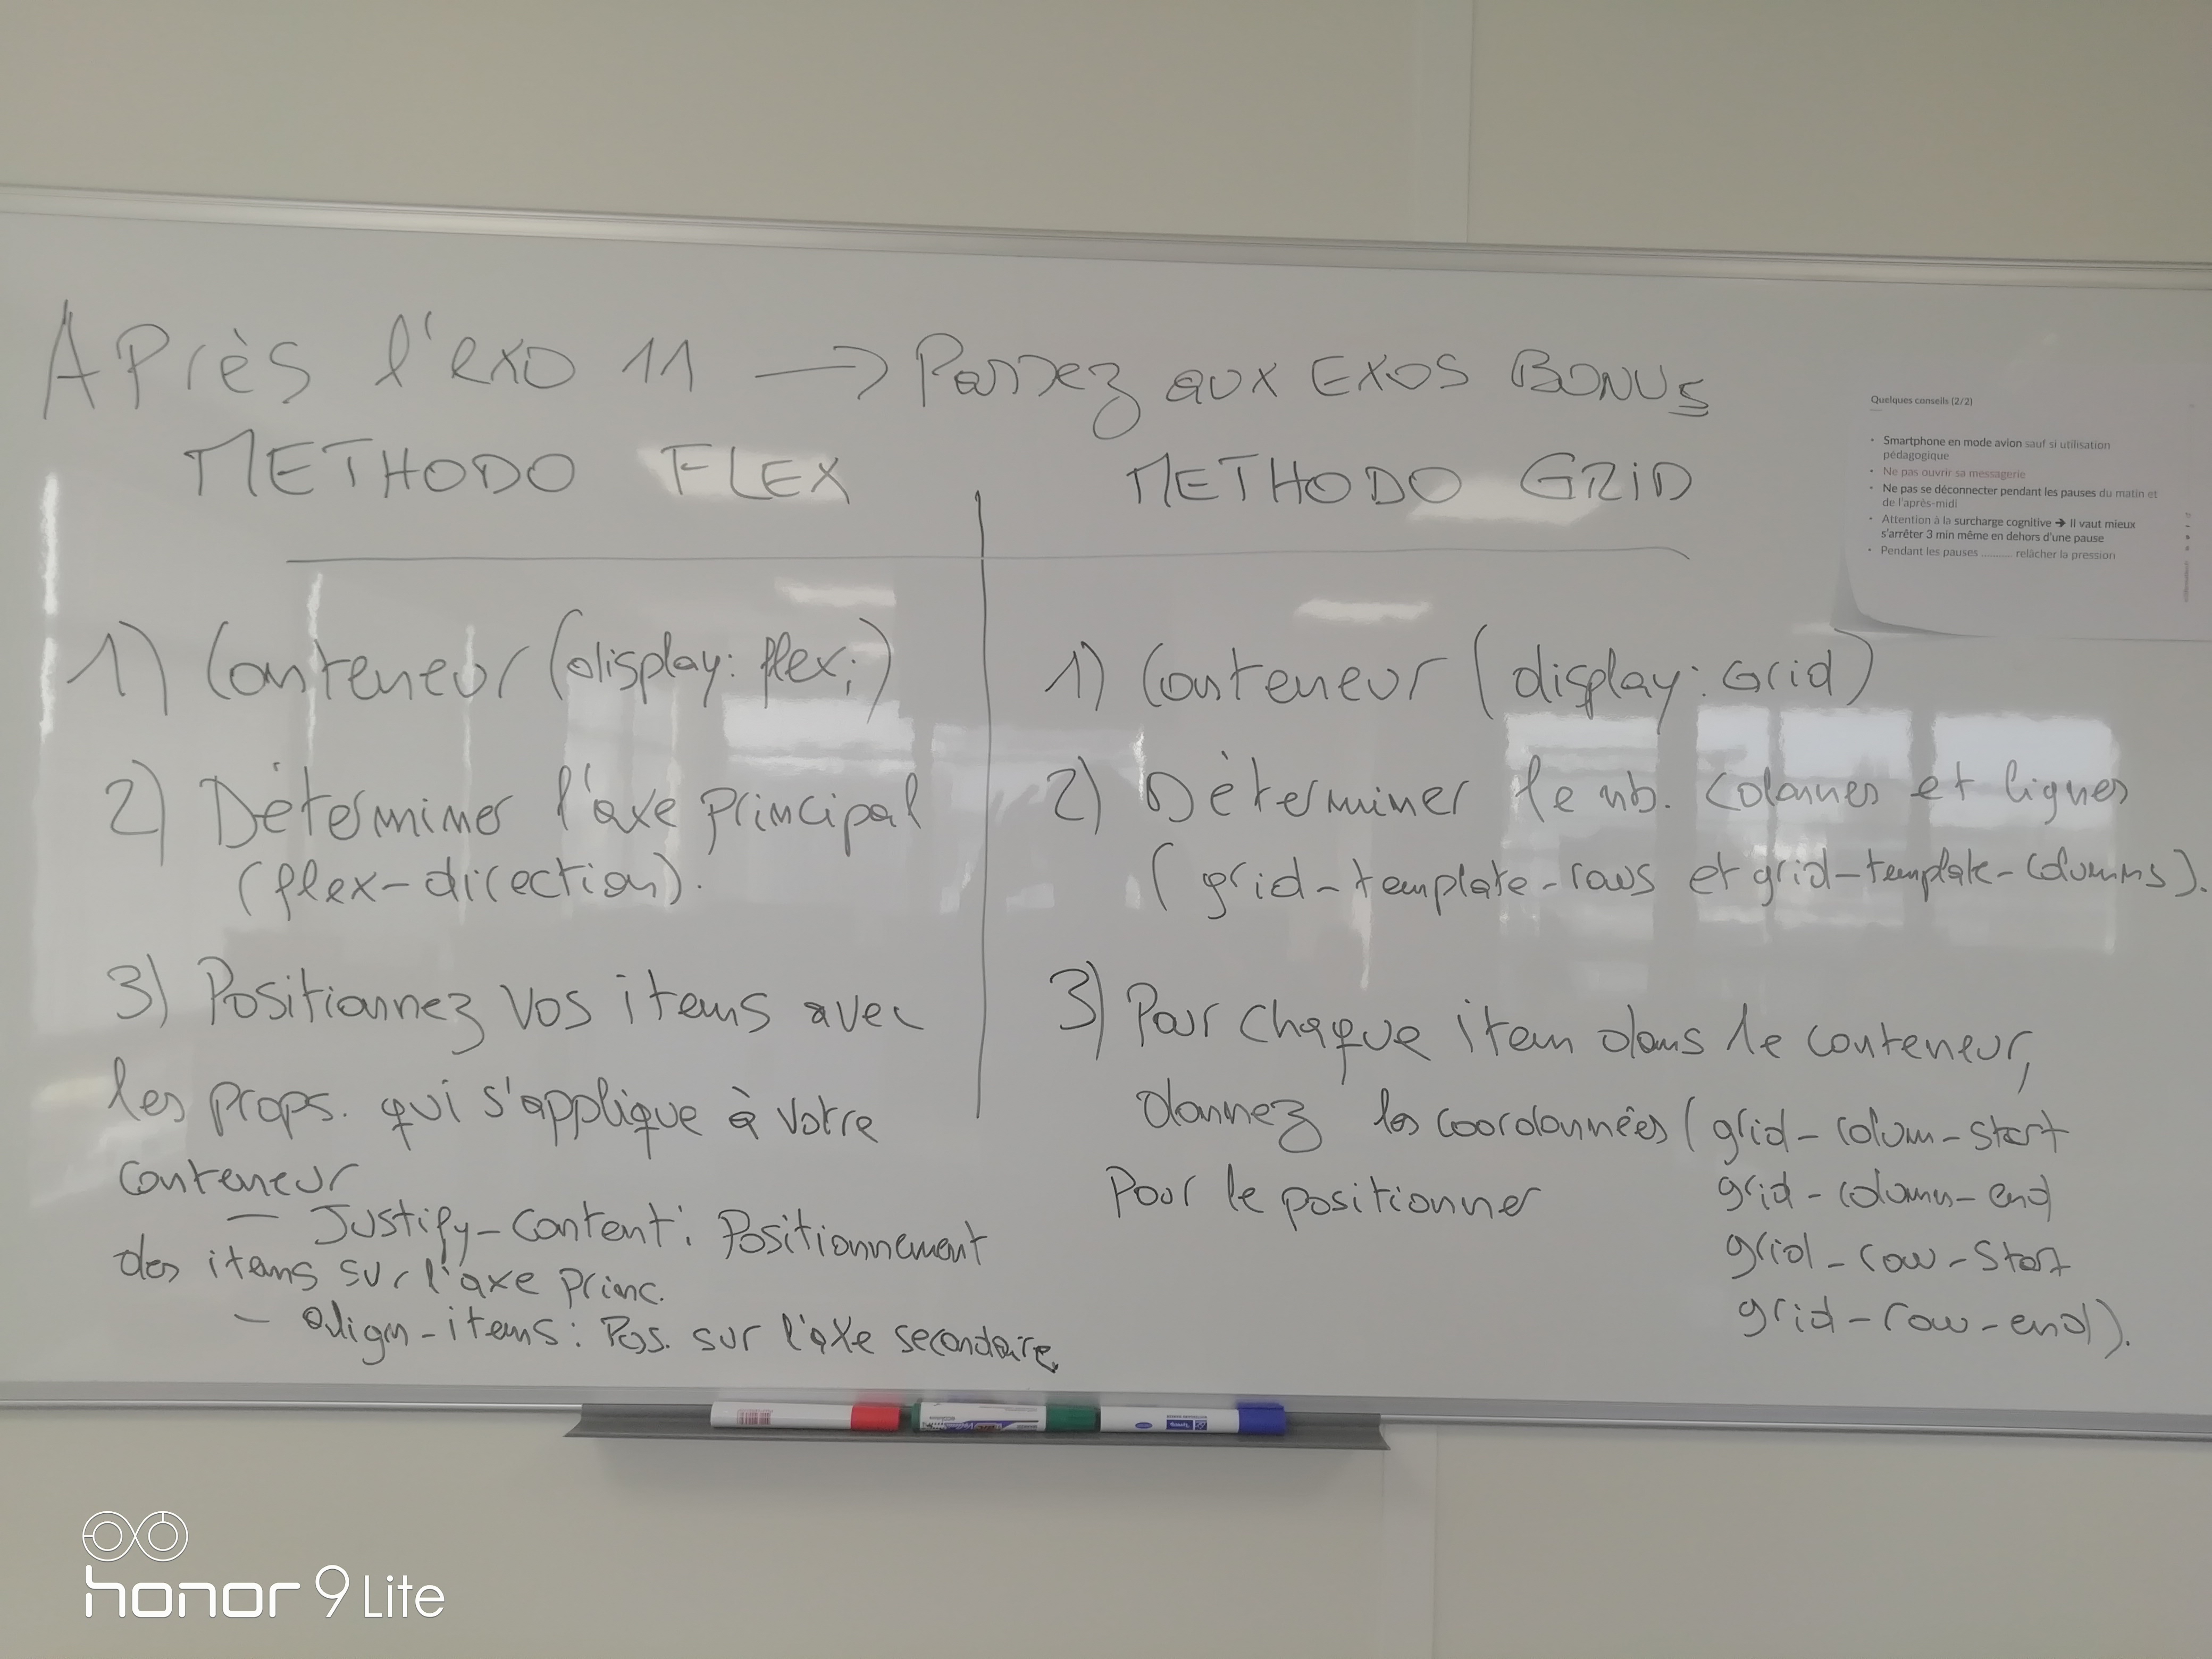 Après l'exo 11 → Passez aux EXOS BONUS
METHODO FLEX
1) Conteneur (display: flex;)
2) Déterminer l'axe principal
(flex-direction).
3) Positionnez vos items avec
les props. qui s'applique à votre
conteneur
— Justify-content: Positionnement
des items sur l'axe princ.
— Align-items: Pos. sur l'axe secondaire.
METHODO GRID
1) Conteneur (display: Grid)
2) Déterminer le nb. colonnes et lignes
(grid-template-rows et grid-template-columns).
3) Pour chaque item dans le conteneur,
donnez les coordonnées (grid-colum-start
Pour le positionner grid-column-end
grid-row-start
grid-row-end).
Quelques conseils (2/2)
• Smartphone en mode avion sauf si utilisation
pédagogique
• Ne pas ouvrir sa messagerie
• Ne pas se déconnecter pendant les pauses du matin et
de l'après-midi
• Attention à la surcharge cognitive ➔ Il vaut mieux
s'arrêter 3 min même en dehors d'une pause
• Pendant les pauses .......... relâcher la pression
honor 9 Lite